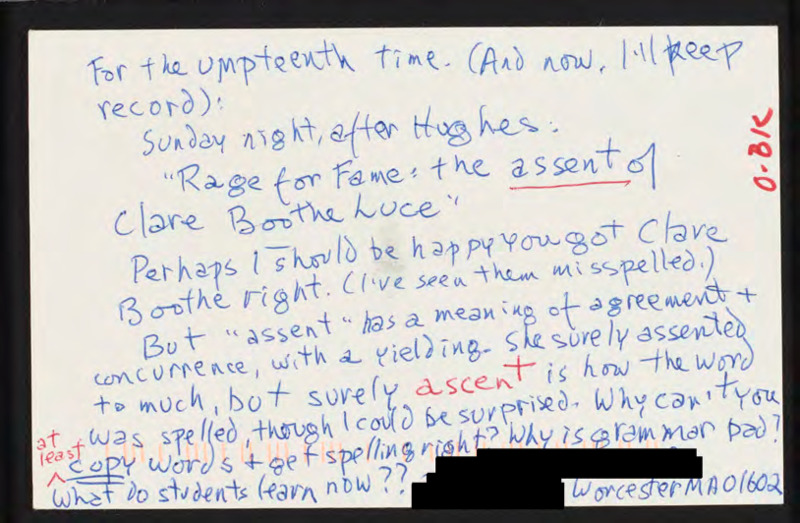 For the umpteenth time. (And now, I'll keep
record):
Sunday night, after Hughes:
"Rage for Fame: the assent of
Clare Boothe Luce"
Perhaps I should be happy you got Clare
Boothe right. (I've seen them misspelled.)
But "assent" has a meaning of agreement +
concurrence, with a yielding. She surely assented
to much, but surely ascent is how the word
was spelled, though I could be surprised. Why can't you
at least copy words + get spelling right? Why is grammar bad?
What do students learn now??
Worcester MA 01602
O-BIK